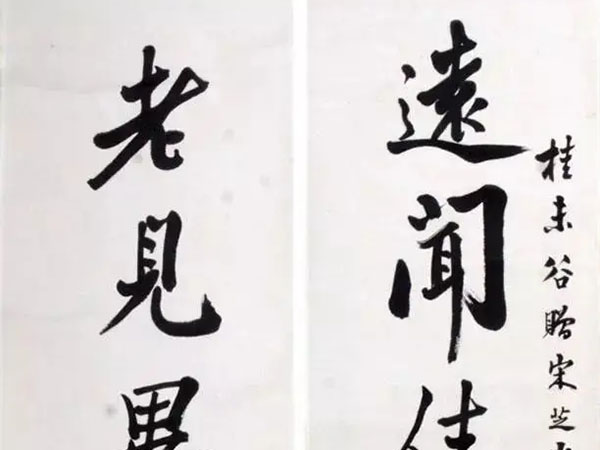 桂未谷贈宋芝
遠聞佳
老見異